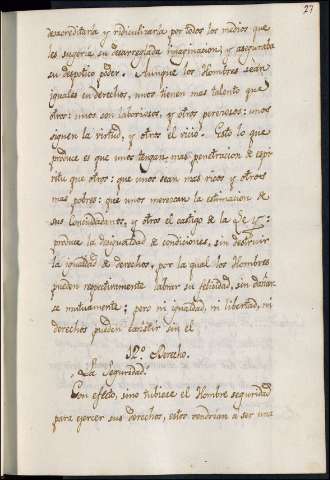 27
desacreditaria y ridiculizaria por todos los medios que
les sugeria su desarreglada imaginacion, y aseguraba
su despotico poder. Aunque los Hombres sean
iguales en derechos, unos tienen mas talento que
otros: unos son laboriosos, y otros perezosos: unos
siguen la virtud, y otros el vicio. Esto lo que
produce es que unos tengan mas penetracion de espi-
ritu que otros: que unos sean mas ricos y otros
mas pobres: que unos merezcan la estimacion de
sus conciudadanos, y otros el castigo de la
produce la desigualdad de condiciones, sin destruir
la igualdad de derechos, por la qual los Hombres
pueden respectivamente labrar su felicidad, sin dañar-
se mutuamente; pero ni igualdad, ni libertad, ni
derechos pueden existir sin el
12.º Derecho.
La Seguridad.
Con efecto, sino tubiese el Hombre seguridad
para ejercer sus derechos, estos vendrian a ser una